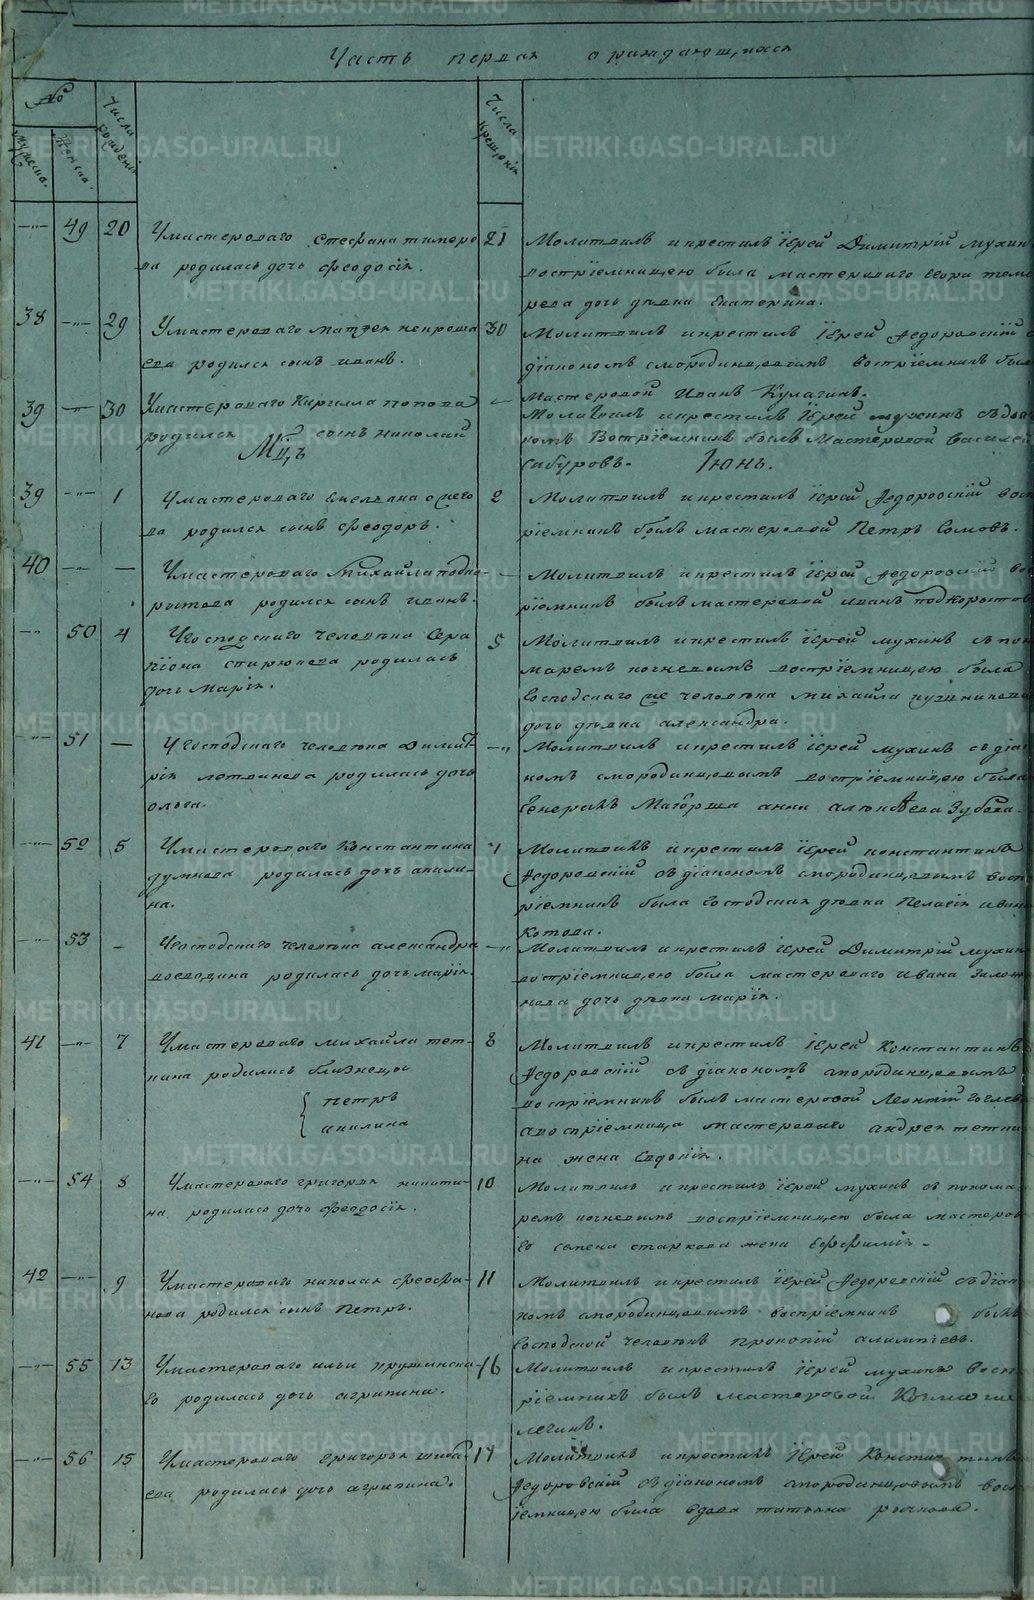 Часть первая о раждающихся
№
Мужеска.
Женска.
Числа рожденія
Числа крещенія
49 20
Умастероваго Стефана тимеро
ва родилась дочь Феодосія.
21
Молитвилъ икрестилъ іерей Димитрій мухин
воспріемницею была мастероваго Егора теме
рева дочь дѣвка Екатерина.
38 29
Умастероваго матѳея непроша
ева родился сынъ иванъ.
30
Молитвилъ икрестилъ іерей Ѳедоровскій с
діакономъ смородинцовымъ Воспріемникъ былъ
мастеровой Иванъ Кулагинъ.
39 30
Умастероваго Кирилла попова
родился сынъ николай
Молитвилъ икрестилъ іерей мухинъ съдьяко
номъ Воспріемникъ былъ мастеровой василей
сабуровъ.
Мцъ Іюнь.
39 1
Умастероваго Емельяна
ва родился сынъ Феодоръ.
2
Молитвилъ икрестилъ іерей Ѳедоровскій восп
ріемникъ былъ мастеровой Петръ Сомовъ.
40
Умастероваго Михайла подко-
рытова родился сынъ иванъ.
Молитвилъ икрестилъ іерей Ѳедоровской вос
ріемникъ былъ мастеровой иванъ подкорытов
50 4
Угосподскаго человѣка Сера
піона спирюкова родилась
дочь Марія.
5
Молитвилъ икрестилъ іерей мухинъ съпоно
маремъ кочневымъ воспріемницею была
Господскаго же человѣка михайла
дочь дѣвка александра.
51
Угосподскаго человѣка димит
рія литвинова родилась дочь
ольга.
Молитвилъ икрестилъ іерей мухинъ съдіако
номъ смородинцовымъ воспріемницею была
Генералъ Маіорша анна алексѣева Зубова.
52 5
Умастероваго Константина
думнова родилась дочь акили-
на.
7
Молитвилъ икрестилъ іерей константинъ
Ѳедоровскій съдіакономъ смородинцовымъ восп
ріемникъ была Господская дѣвка Пелагія иван
Котова.
53
Угосподскаго человѣка александра
воеводина родилась дочь марія.
Молитвилъ икрестилъ іерей Димитрій мухин
воспріемницею была мастероваго Ивана
нова дочь дѣвка марія.
41 7
Умастероваго михайла тет-
кина родились близнецы
{ петръ
акилина
8
Молитвилъ икрестилъ іерей Константинъ
Ѳедоровскій съдіакономъ смородинцовымъ
воспріемникъ былъ мастеровой Леонтій гоглев
авоспріемница мастероваго андрея тетки
на жена Евдокія.
54 8
Умастероваго григорья никити-
на родилась дочь феодосія.
10
Молитвилъ икрестилъ іерей мухинъ съ понома
ремъ кочневымъ воспріемницею была мастеров
го семена старкова жена Ефимія.
42 9
Умастероваго николая феофа-
нова родился сынъ Петръ.
11
Молитвилъ икрестилъ іерей Ѳедоровскій съдіак
номъ смородинцовымъ воспріемникъ былъ
Господской человѣкъ прокопій алимпіевъ.
55 13
Умастероваго ильи
го родилась дочь агрипина.
16
Молитвилъ икрестилъ іерей мухинъ восп
ріемникъ былъ мастеровой Козма ше
легинъ.
56 15
Умастероваго григорья шиба-
ева родилась дочь агрипина.
17
Молитвилъ икрестилъ іерей Константинъ
Ѳедоровскій съдіакономъ смородинцовымъ восп
іемницею была вдова татьяна
METRIKI.GASO-URAL.RU